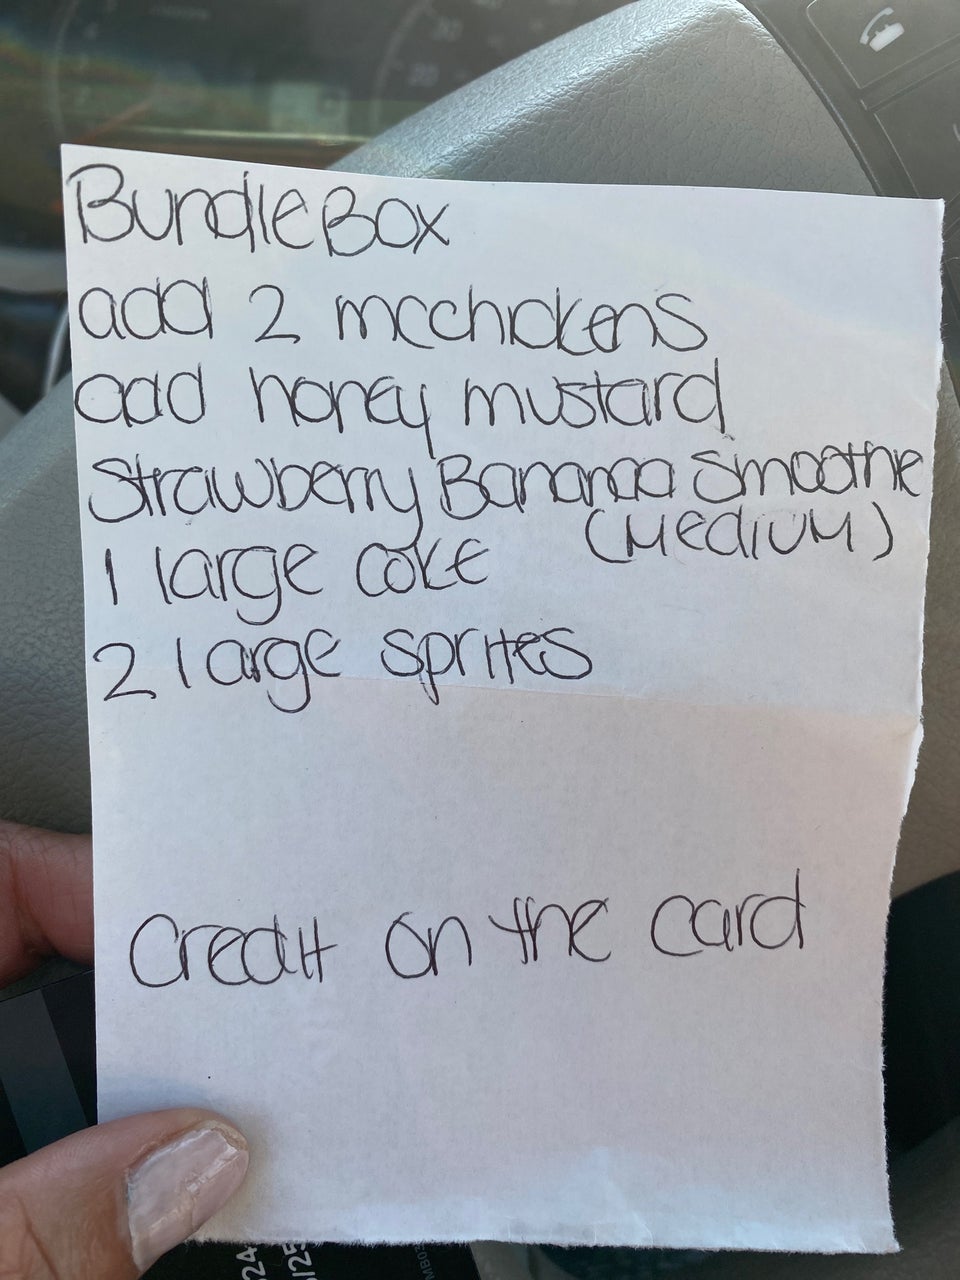 Bundle Box
add 2 mcchickens
add honey mustard
Strawberry Banana Smoothie
(Medium)
1 large coke
2 large sprites
Credit on the card
24
1/25